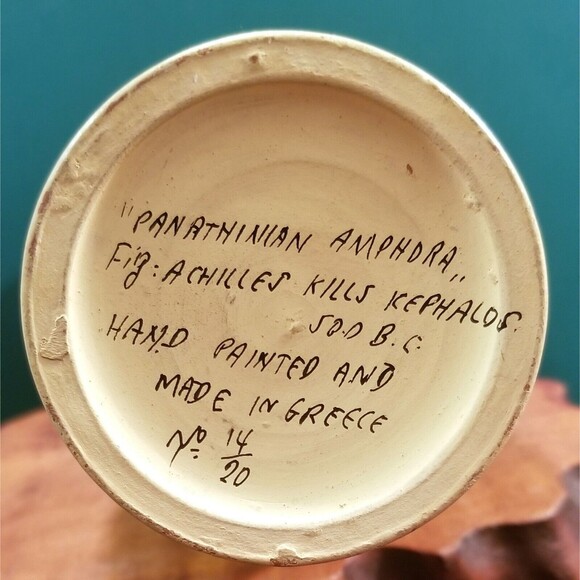 "PANATHINIAN AMPHORA,,
Fig: ACHILLES KILLS KEPHALOS.
500 B.C.
HAND PAINTED AND
MADE IN GREECE
No 14/20